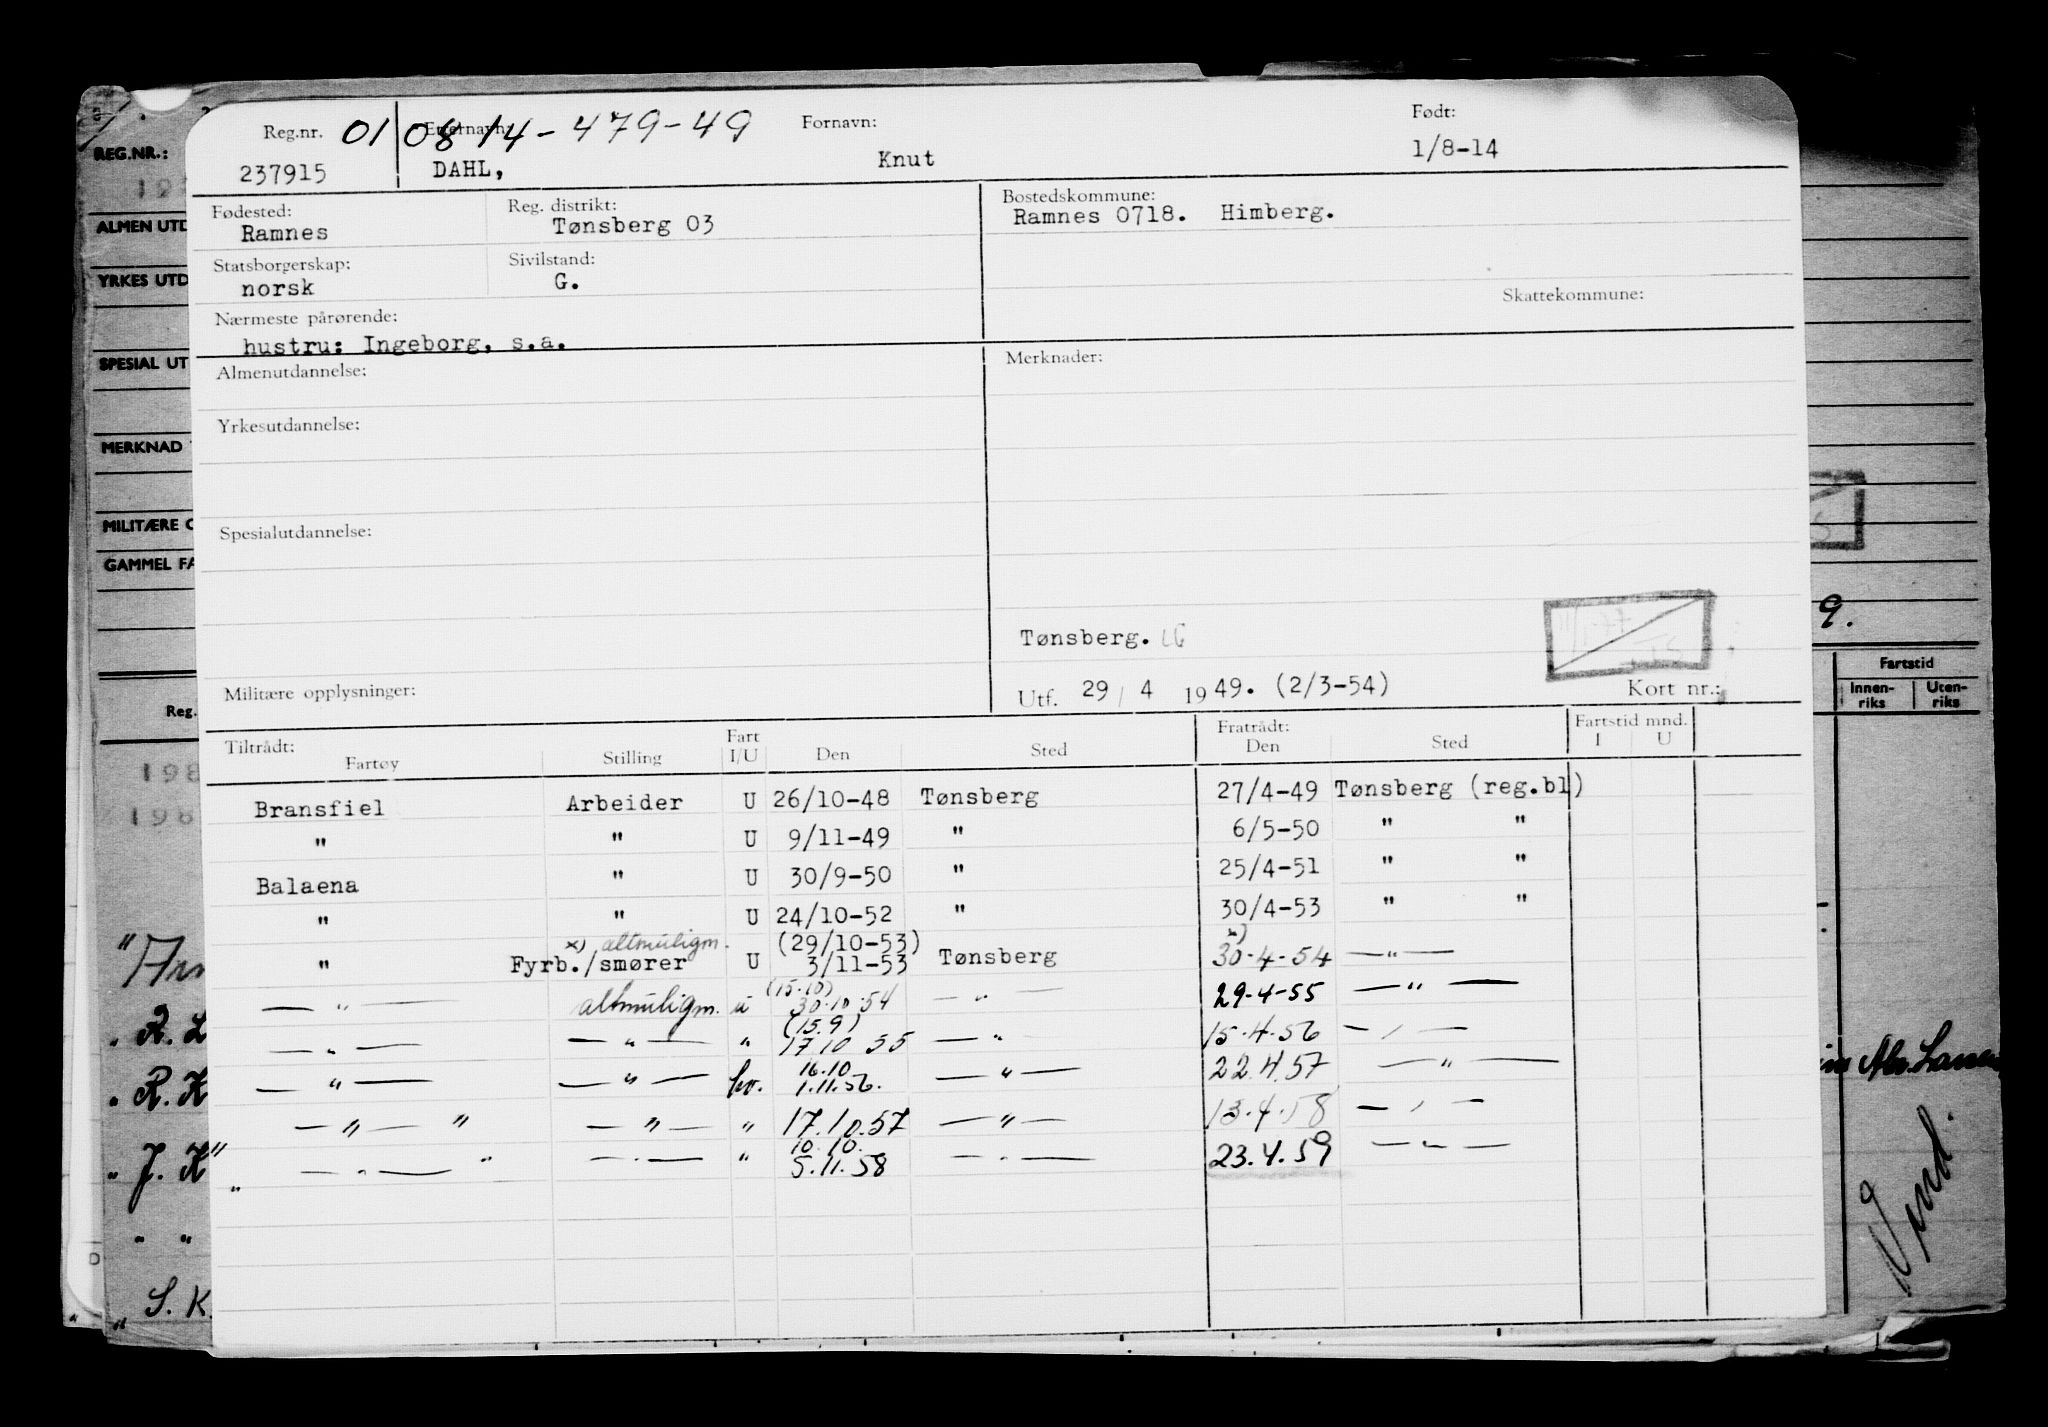 Reg.nr. 01 08 14 - 479-49 Etternavn: Fornavn: Født:
237915 DAHL, Knut 1/8-14
Fødested: Reg. distrikt: Bostedskommune:
Ramnes Tønsberg 03 Ramnes 0718. Himberg.
Statsborgerskap: Sivilstand:
norsk G.
Skattekommune:
Nærmeste pårørende:
hustru: Ingeborg, s.a.
Almenutdannelse: Merknader:
Yrkesutdannelse:
Spesialutdannelse:
Tønsberg. LG
Militære opplysninger: Utf. 29 / 4 1949. (2/3-54) Kort nr.:
Tiltrådt: Fratrådt: Fartstid mnd.
Fartøy Stilling Fart I/U Den Sted Den Sted I U
Bransfiel Arbeider U 26/10-48 Tønsberg 27/4-49 Tønsberg (reg.bl)
" " U 9/11-49 " 6/5-50 " "
Balaena " U 30/9-50 " 25/4-51 " "
" " U 24/10-52 " 30/4-53 " "
x) altmuligm. (29/10-53) x)
" Fyrb./smører U 3/11-53 Tønsberg 30.4-54 — " —
(15.10)
— " — altmuligm. u 30.10.54 — " — 29-4-55 — " —
(15.9)
— " — — " — " 17 10 55 — " — 15.4.56 — " —
16.10
— " — — " — hv. 1.11.56. — " — 22.4.57 — " —
— " — " — " — " 17.10.57 — " — 13.4.58 — " —
10.10.
— " — " — " — " 5.11.58 — " — 23.4.59 — " —
REG.NR.:
ALMEN UTD
YRKES UTD
SPESIAL UT
MERKNAD
MILITÆRE O
GAMMEL FA
Reg.
198
R. L
R. K
J. K
S. K.
9.
Fartstid
Innen-riks Uten-riks